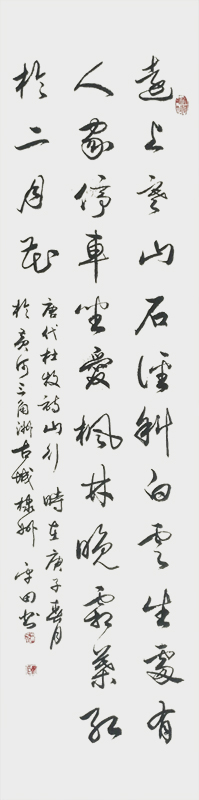 遠上寒山石徑斜白雲生處有
人家停車坐愛楓林晚霜葉紅
於二月花
唐代杜牧詩山行 時在庚子春月
於黃河三角洲古城棣州 田书